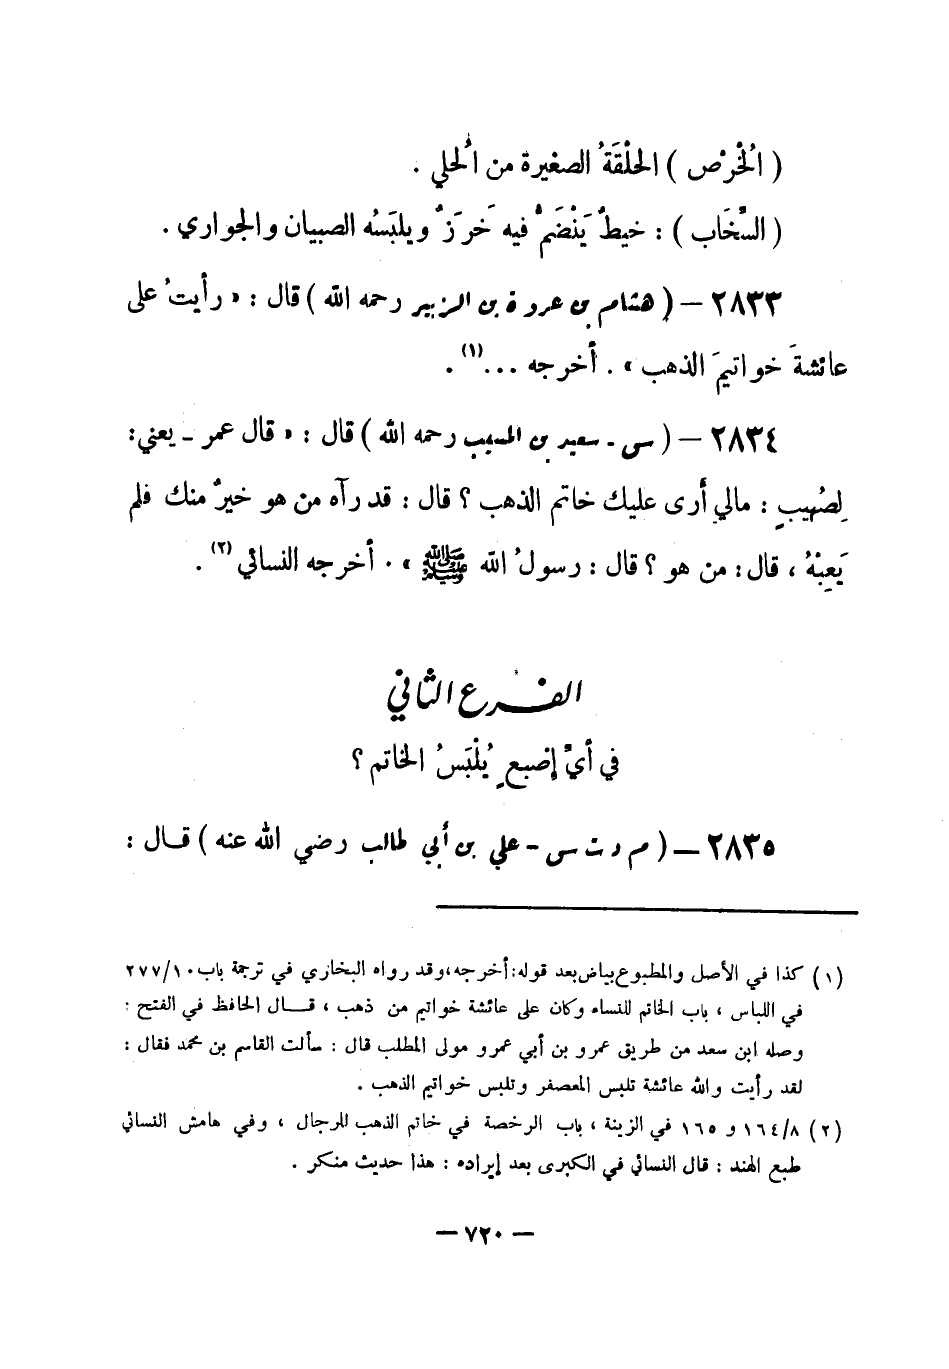 ( الخُرْص ) الحلْقَةُ الصغيرة من الُحلي .
( السِّخَاب ) : خيطٌ يَنْضَمُّ فيه خَرَزٌ ويلبَسُه الصبيان والجواري .
٢٨٣٣ – ( هشام بن عروة بن الزبير رحمه الله ) قال : « رأيتُ على
عائشةَ خواتيمَ الذهب » . أخرجه ...(١) .
٢٨٣٤ – ( س - سعيد بن المسيب رحمه الله ) قال : « قال عمر ـ يعني :
لِصُهيبٍ : مالي أرى عليك خاتم الذهب ؟ قال : قد رآه من هو خيرٌ منك فلم
يَعِبْهُ ، قال : من هو ؟ قال : رسولُ الله ﷺ » . أخرجه النسائي (٢) .
الفرع الثاني
في أيِّ إصبعٍ يُلْبَسُ الخاتم ؟
٢٨٣٥ – ( م د ت س - علي بن أبي طالب رضي الله عنه ) قال :
(١) كذا في الأصل والمطبوع بياض بعد قوله : أخرجه ، وقد رواه البخاري في ترجمة باب ١٠/٢٧٧
في اللباس ، باب الخاتم للنساء وكان على عائشة خواتيم من ذهب ، قال الحافظ في الفتح :
وصله ابن سعد من طريق عمرو بن أبي عمرو مولى المطلب قال : سألت القاسم بن محمد فقال :
لقد رأيت والله عائشة تلبس المعصفر وتلبس خواتيم الذهب .
(٢) ٨/١٦٤ و ١٦٥ في الزينة ، باب الرخصة في خاتم الذهب للرجال ، وفي هامش النسائي
طبع الهند : قال النسائي في الكبرى بعد إيراده : هذا حديث منكر .
– ٧٢٠ –